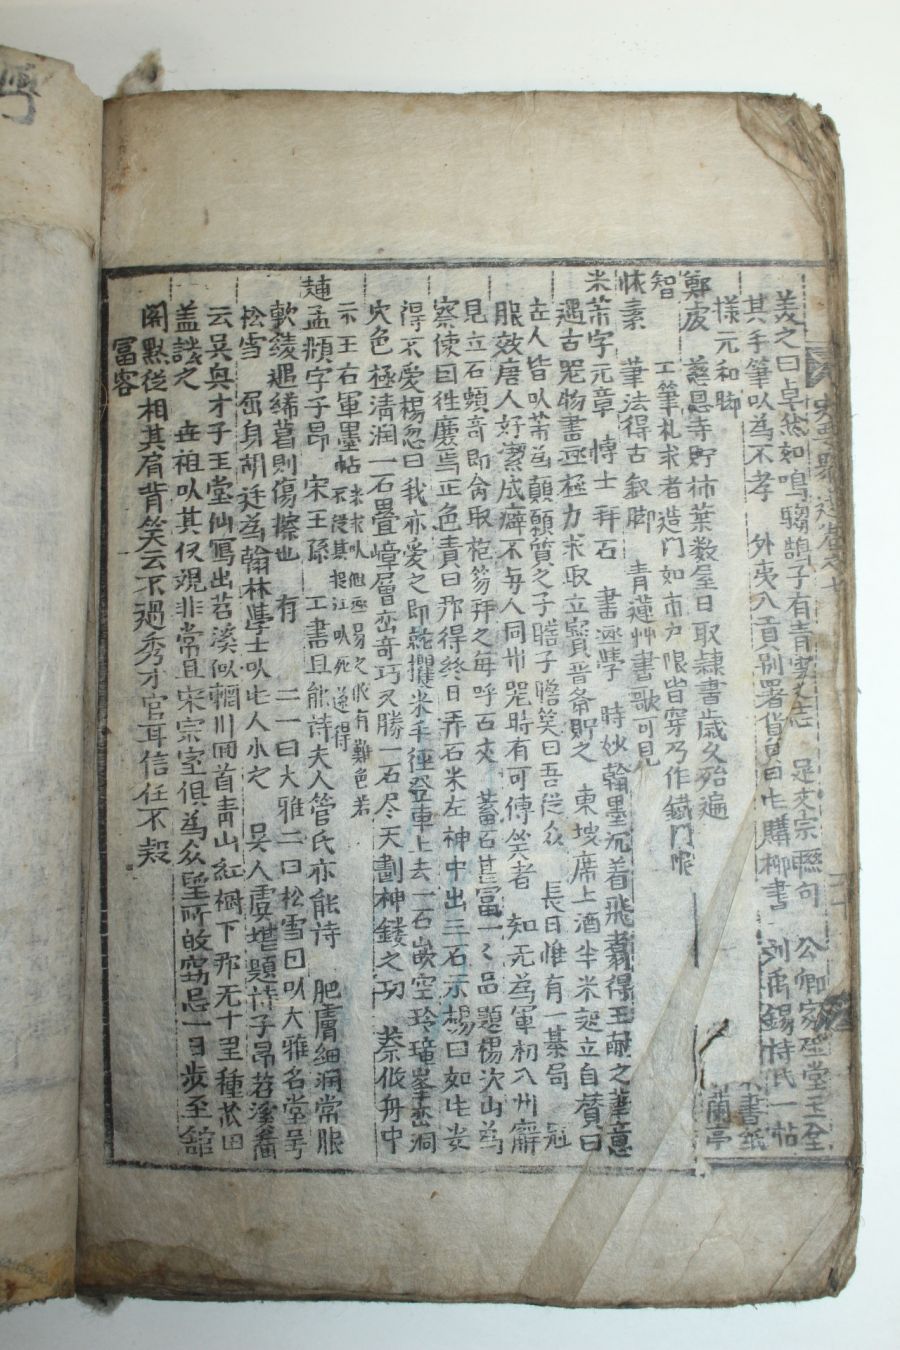 羲之曰卓然如鳴騶 子有青雲之志 足文宗聯句 公卿家碑堂玉全
其手筆以為不孝 外夷入貢別署貨貝曰此購柳書 刘禹錫持氏一帖 書紙
樣元和脚 蘭亭
鄭虔 慈恩寺貯柿葉数屋日取隷書歲久殆遍
智 工筆札求者造门如市户限皆穿乃作鐵门限
懷素 筆法得古釵脚 青蓮艸書歌可見
米芾字元章 博士拜石 書 學 時妙翰墨沉着飛翥得王献之筆意
遇古器物書畫極力求取立寳晋斋貯之 東坡席上酒半米起立自賛曰
古人皆以芾为顛願質之子瞻子瞻笑曰吾從众 長日惟有一棊局 冠
服效唐人好潔成癖不与人同卅器時有可傳笑者 知无为軍初入州廨
見立石頗奇即命取袍笏拜之每呼石丈 蓄石甚富一〻品題楊次山為
察使因徃廉焉正色責曰那得終日弄石米左袖中出三石示楊曰如此安
得不愛楊忽曰我亦愛之即 攫米手徑登車上去一石嵌空玲瓏峯峦洞
穴色極淸润一石疊嶂層峦奇巧又勝一石尽天劃神鏤之功 蔡攸舟中
示王右軍墨帖 米求以他画易之攸有難色若不從其投江以死遂得
趙孟頫字子昂 宋王孫 工書且能诗夫人管氏亦能诗 肥膚細润常服
軟綾遇絺葛則傷擦也 有 二一曰大雅二曰松雪曰以大雅名堂号
松雪 屈身胡廷为翰林學士以此人小之 吴人虞堪題诗子昂苕溪畵
云吴興才子玉堂仙冩出苕溪似輞川回首青山紅樹下那无十里種苽田
盖譏之 丗祖以其仪覌非常且宋宗室俱為众望所敀窃忌一日步至舘
阁默從相其肩背笑云不過秀才官耳信任不疑
冨容